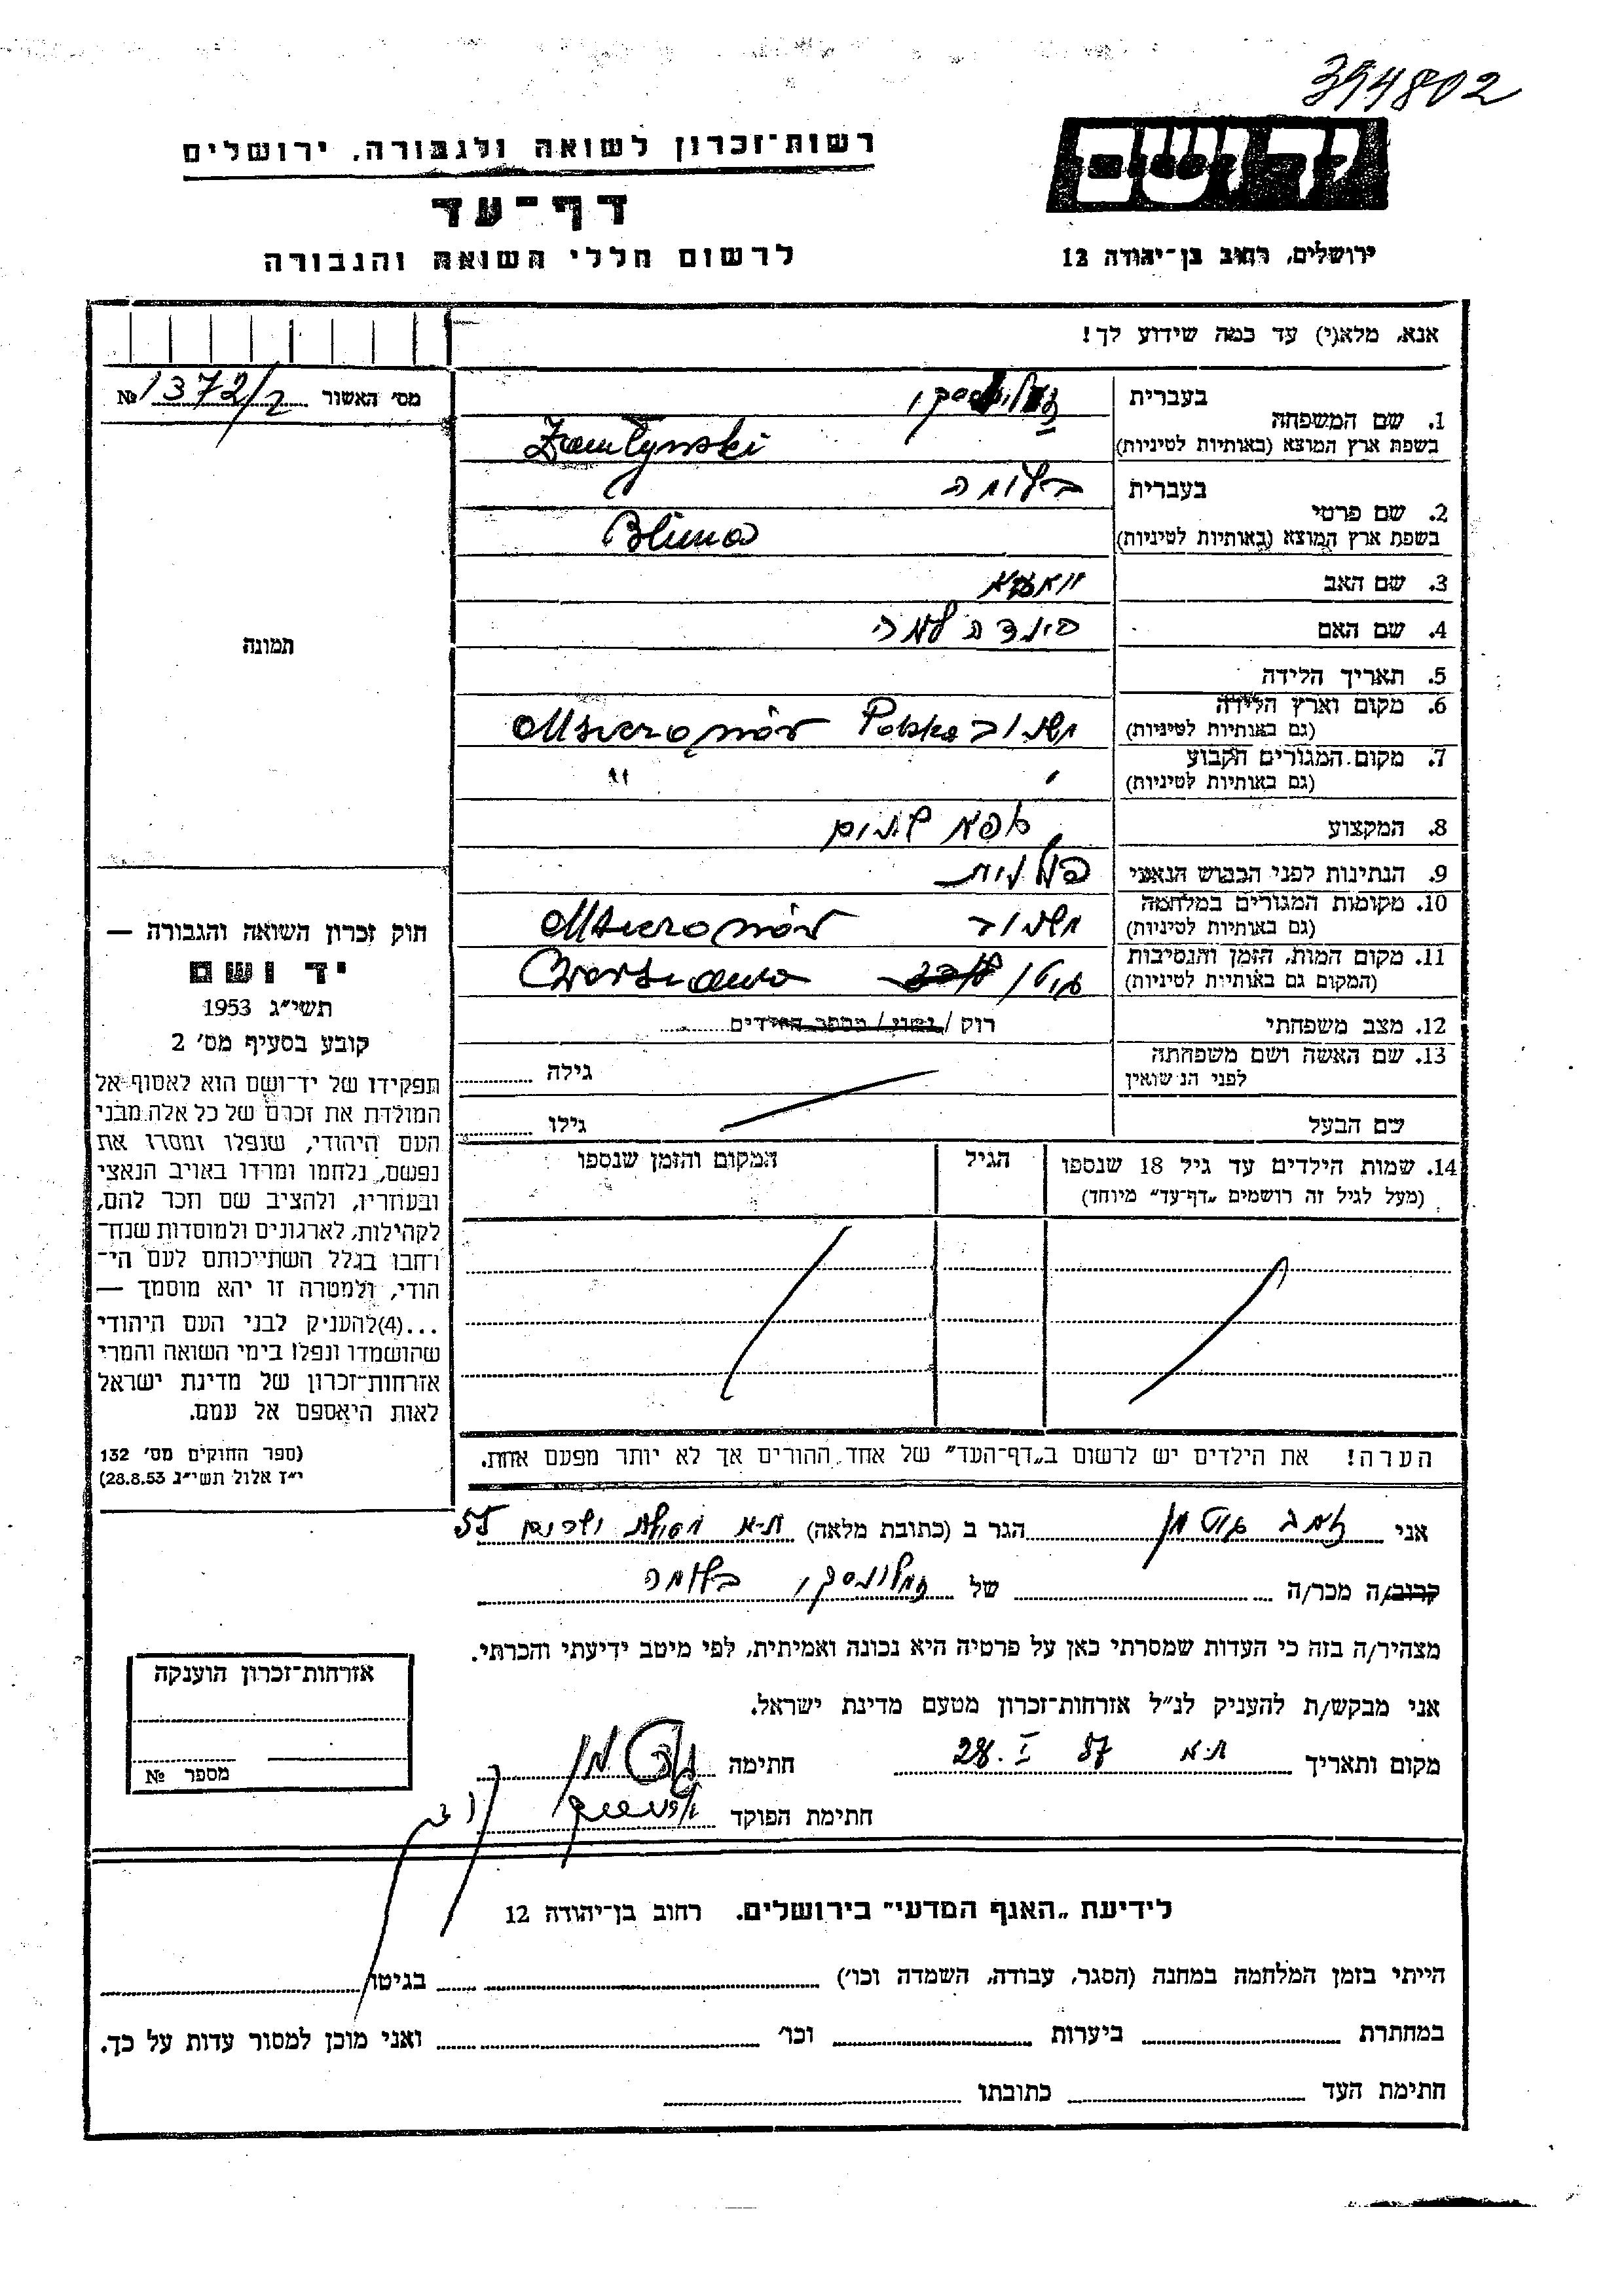 394802
יד ושם
רשות־זכרון לשואה ולגבורה, ירושלים
דף־עד
לרשום חללי השואה והגבורה
ירושלים, רחוב בן־יהודה 12
אנא, מלא(י) עד כמה שידוע לך!
מס׳ האשור № 1372/2
תמונה
1. שם המשפחה
בעברית
בשפת ארץ המוצא (באותיות לטיניות)
2. שם פרטי
בעברית בלומה
בשפת ארץ המוצא (באותיות לטיניות) Bluma
3. שם האב
4. שם האם
5. תאריך הלידה
6. מקום וארץ הלידה Polska
(גם באותיות לטיניות)
7. מקום המגורים הקבוע "
(גם באותיות לטיניות)
8. המקצוע
9. הנתינות לפני הכבוש הנאצי פולנית
10. מקומות המגורים במלחמה
(גם באותיות לטיניות)
11. מקום המות, הזמן והנסיבות גיטו Warszawa
(המקום גם באותיות לטיניות)
12. מצב משפחתי רוק / נשוי / מספר הילדים
13. שם האשה ושם משפחתה
לפני הנישואין גילה
שם הבעל גילו
14. שמות הילדים עד גיל 18 שנספו הגיל המקום והזמן שנספו
(מעל לגיל זה רושמים „דף־עד״ מיוחד)
הערה! את הילדים יש לרשום ב„דף־העד״ של אחד ההורים אך לא יותר מפעם אחת.
חוק זכרון השואה והגבורה —
יד ושם
תשי״ג 1953
קובע בסעיף מס׳ 2
תפקידו של יד־ושם הוא לאסוף אל
המולדת את זכרם של כל אלה מבני
העם היהודי, שנפלו ומסרו את
נפשם, נלחמו ומרדו באויב הנאצי
ובעוזריו, ולהציב שם וזכר להם,
לקהילות, לארגונים ולמוסדות שנח־
רחבו בגלל השתייכותם לעם הי־
הודי, ולמטרה זו יהא מוסמך —
...(4)להעניק לבני העם היהודי
שהושמדו ונפלו בימי השואה והמרי
אזרחות־זכרון של מדינת ישראל
לאות היאספם אל עמם.
(ספר החוקים מס׳ 132
י״ז אלול תשי״ג 28.8.53)
אני גוטמן הגר ב (כתובת מלאה) ת-א
קרוב/ה מכר/ה של זמלינסקי בלומה
מצהיר/ה בזה כי העדות שמסרתי כאן על פרטיה היא נכונה ואמיתית, לפי מיטב ידיעתי והכרתי.
אני מבקש/ת להעניק לנ״ל אזרחות־זכרון מטעם מדינת ישראל.
מקום ותאריך ת-א 28. I 57 חתימה
חתימת הפוקד
אזרחות־זכרון הוענקה
מספר №
לידיעת „האגף המדעי״ בירושלים. רחוב בן־יהודה 12
הייתי בזמן המלחמה במחנה (הסגר, עבודה, השמדה וכו׳) בגיטו
במחתרת ביערות וכו׳ ואני מוכן למסור עדות על כך.
חתימת העד כתובתו